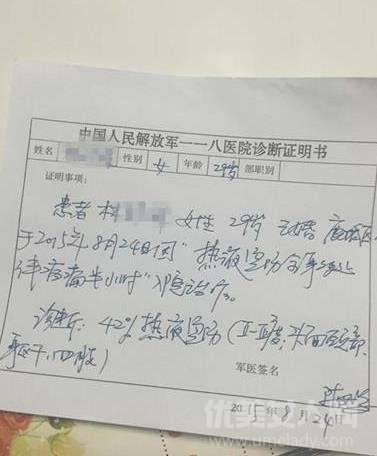 中国人民解放军一一八医院诊断证明书
姓名 性别 女 年龄 29岁 部职别
证明事项：
患者 林 女性 29岁 已婚
于2015年8月24日因"热液烫伤全身多处
伴疼痛半小时"入院治疗。
诊断：42%热液烫伤（II-III度，头面颈部
躯干、四肢）
军医签名
2015年8月24日
优美女人网
www.umelady.com